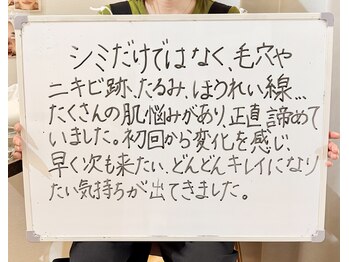 シミだけではなく、毛穴や
ニキビ跡、たるみ、ほうれい線…
たくさんの肌悩みがあり、正直諦めて
いました。初回から変化を感じ、
早く次も来たい、どんどんキレイになり
たい気持ちが出てきました。